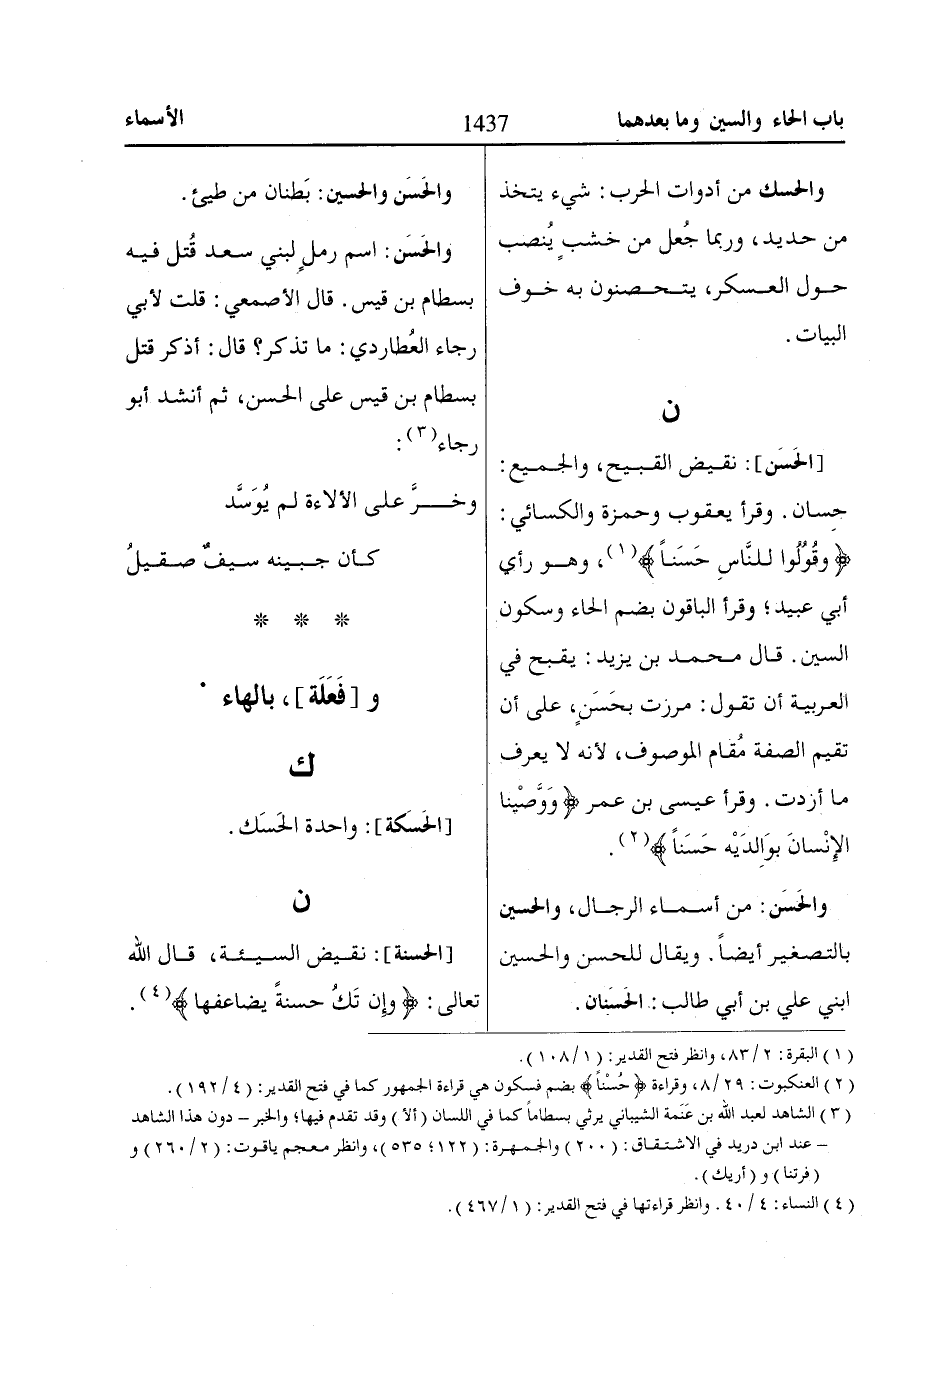 باب الحاء والسين وما بعدهما
1437
الأسماء
والحسك من أدوات الحرب: شيء يتخذ
من حديد، وربما جُعل من خشبٍ يُنصب
حول العسكر، يتحصنون به خوف
البيات.
ن
[الحَسَن]: نقيض القبيح، والجميع:
حِسان. وقرأ يعقوب وحمزة والكسائي:
﴿وقُوْلُوا للنَّاسِ حَسَناً﴾(١)، وهو رأي
أبي عبيد؛ وقرأ الباقون بضم الحاء وسكون
السين. قال محمد بن يزيد: يقبح في
العربية أن تقول: مررت بحَسَنٍ، على أن
تقيم الصفة مُقام الموصوف، لأنه لا يعرف
ما أردت. وقرأ عيسى بن عمر ﴿وَوَصَّيْنا
الإِنْسانَ بوَالدَيْه حَسَناً﴾(٢).
والحَسَن: من أسماء الرجال، والحسين
بالتصغير أيضاً. ويقال للحسن والحسين
ابني علي بن أبي طالب: الحَسَنان.
والحَسَن والحسين: بَطنان من طيئ.
والحَسَن: اسم رملٍ لبني سعد قُتل فيه
بسطام بن قيس. قال الأصمعي: قلت لأبي
رجاء العُطاردي: ما تذكر؟ قال: أذكر قتل
بسطام بن قيس على الحسن، ثم أنشد أبو
رجاء(٣):
وخـــرَّ على الألاءة لم يُوَسَّد
كأن جبينه سيفٌ صقيلُ
* * *
و [فَعَلَة]، بالهاء
ك
[الحَسَكة]: واحدة الحَسَك.
ن
[الحسنة]: نقيض السيئة، قال الله
تعالى: ﴿وإن تَكُ حسنةً يضاعفها﴾(٤).
(١) البقرة: ٢/ ٨٣، وانظر فتح القدير: (١/ ١٠٨).
(٢) العنكبوت: ٢٩/ ٨، وقراءة ﴿حُسْناً﴾ بضم فسكون هي قراءة الجمهور كما في فتح القدير: (٤/ ١٩٢).
(٣) الشاهد لعبد الله بن عَنَمة الشيباني يرثي بسطاماً كما في اللسان (ألأ) وقد تقدم فيها؛ والخبر – دون هذا الشاهد
– عند ابن دريد في الاشتقاق: (٢٠٠) والجمهرة: (١٢٢؛ ٥٣٥)، وانظر معجم ياقوت: (٢/ ٢٦٠) و
(فرتنا) و (أريك).
(٤) النساء: ٤/ ٤٠. وانظر قراءتها في فتح القدير: (١/ ٤٦٧).